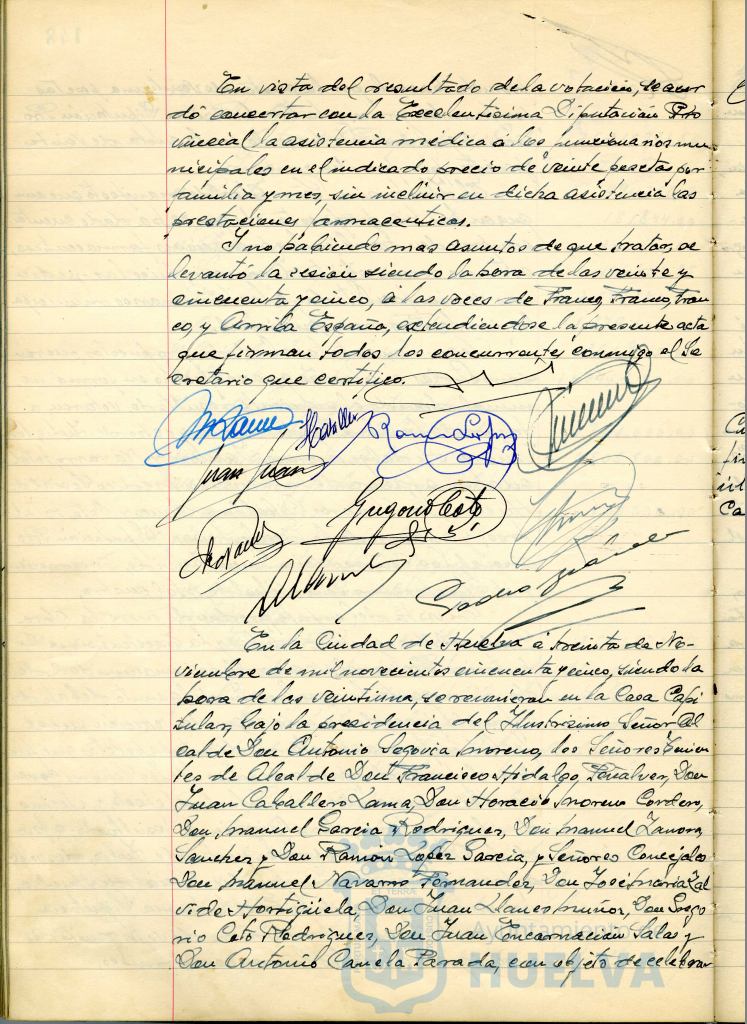 En vista del resultado de la votación, se acor
dó concertar con la Excelentísima Diputación Pro
vincial la asistencia médica á los funcionarios mu
nicipales en el indicado precio de veinte pesetas por
familia y mes, sin incluir en dicha asistencia las
prestaciones farmaceuticas.
Y no habiendo mas asuntos de que tratar, se
levantó la sesión siendo la hora de las veinte y
cincuenta y cinco, á las voces de Franco, Franco, Fran
co, y Arriba España, extendiendose la presente acta
que firman todos los concurrentes conmigo el Se
cretario que certifico.
Ramon Lopez
Juan
Gregorio Coto
Pedro
En la Ciudad de Huelva á treinta de No-
viembre de mil novecientos cincuenta y cinco, siendo la
hora de las veintiuna, se reunieron en la Casa Capi
tular, bajo la presidencia del Ilustrisimo Señor Al
calde Don Antonio Segovia Moreno, los Señores Tenien
tes de Alcalde Don Francisco Hidalgo Peñalver, Don
Juan Caballero Lama, Don Horacio Moreno Cordero,
Don Manuel Garcia Rodriguez, Don Manuel Zamora
Sanchez y Don Ramón Lopez Garcia, y Señores Concejales
Don Manuel Navarro Fernandez, Don José Maria Zal
vide Hortigüela, Don Juan Llanes Muñoz, Don Grego
rio Coto Rodriguez, Don Juan Encarnación Salas y
Don Antonio Canela Parada, con objeto de celebrar
Ayuntamiento de
HUELVA